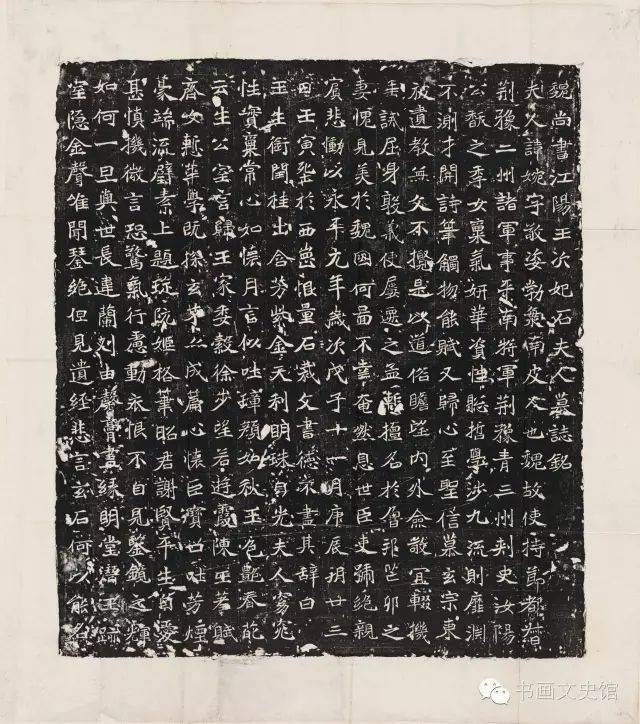 魏尚書江陽王次妃石夫人墓誌銘
夫人諱婉字敬姿勃海南皮人也魏故使持節都督
荊豫二州諸軍事平南將軍荊豫青三州刺史汝陽
公馛之季女稟氣妍華資性聰哲學涉九流則靡淵
不測才關詩筆觸物能賦又歸心至聖信慕玄宗東
被遺教無文不攬是以道俗瞻望內外僉敬宜輟機
垂誡屈身敦義使屢逸之孟暫擅名於魯邦芒卯之
妻愧見美於魏國何圖不壽奄然息世臣吏號絕親
賓悲慟以永平元年歲次戊子十一月庚辰朔廿三
日壬寅葬於西崗恨量石裁文書德其辭曰
玉生銜闉桂出含芳紫金天利明珠自光夫人窈窕
性實稟常心如懷月言似吐璋顏如秋玉色艷春葩
云生公室言歸王家委縠徐步望若遊霞陳王羞賦
齊女慚華學既探玄才亦成篇心懷巨寶口吐芳煙
毫端流璧素上題琁阮嫗捨筆昭君謝賢平生自愛
甚慎機微言恐驚氣行慮動衣恨不自見鑒鏡之輝
如何一旦與世長違蘭刈由馨膏盡緣明堂潛玉跡
室隱金聲唯聞琴絕但見遺經悲言玄石何以能名
书画文史馆